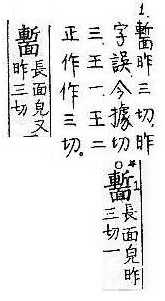 1. 昨三切。昨
字誤，今據切
三、王一、王二
正作作三切。
長面皃又
昨三切
*1
長面皃昨
三切一